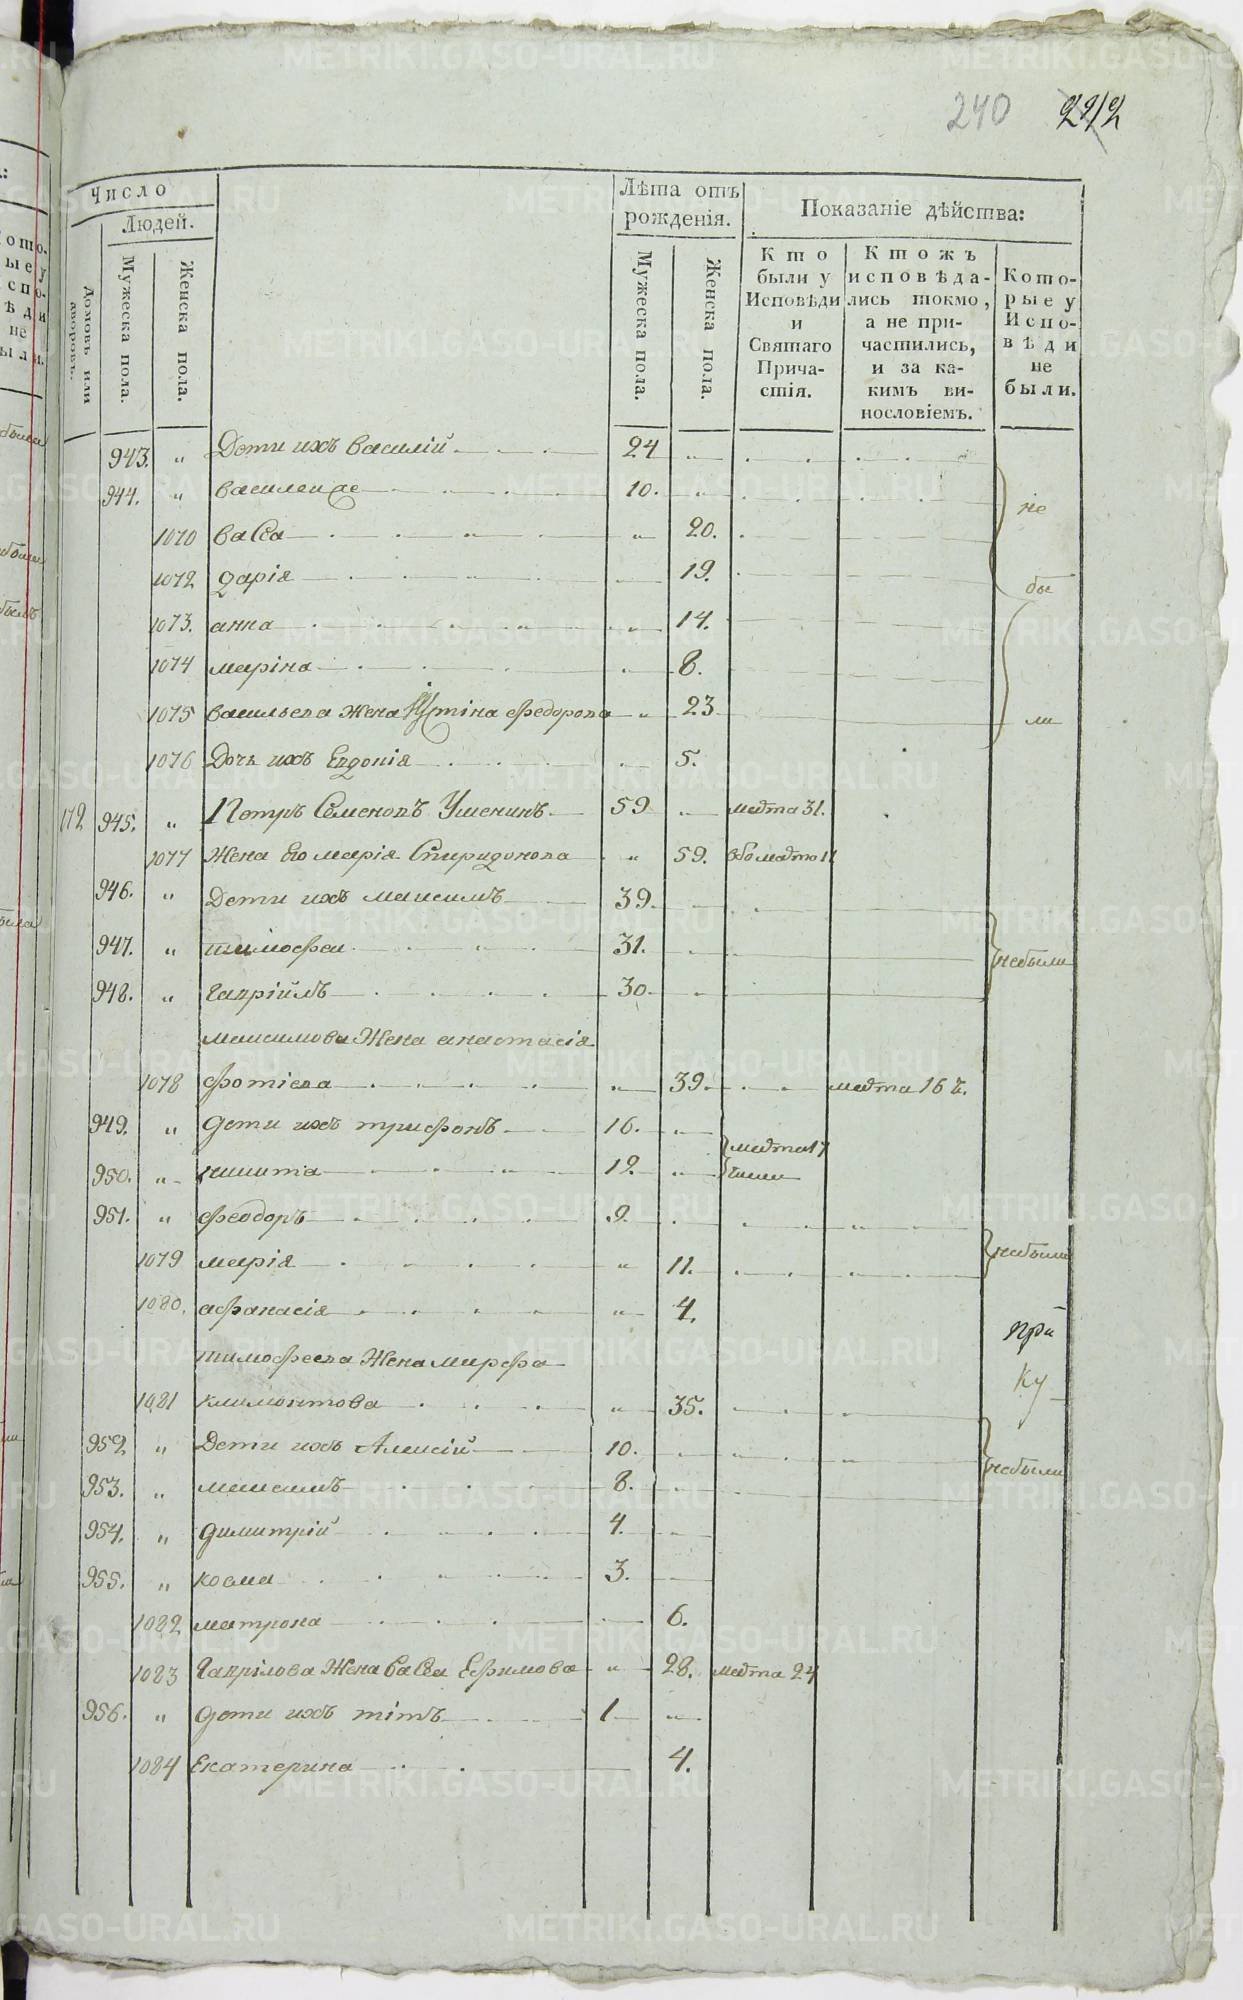 240 222
Число
Людей.
Домовъ или дворовъ.
Мужеска пола.
Женска пола.
Лѣта отъ рожденія.
Мужеска пола.
Женска пола.
Показаніе дѣйства:
Кто были у Исповѣди и Святаго Причастія.
Ктожъ исповѣдались токмо, а не причастились, и за какимъ винословіемъ.
Которые у Исповѣди не были.
943. " Дети ихъ Василій 24 "
944. " Василей же 10. " не
1070 Васса " 20.
1072 Дарія 19. бы
1073. Анна " 14.
1074 Маріна " 8.
1075 Васильева Жена Іустина Федорова " 23 ли
1076 Дочь ихъ Евдокія 5.
172 945. " Петръ Семеновъ Ушенинъ 59 " марта 31.
1077 Жена Его Марія Спиридонова " 59.
946. " Дети ихъ Максимъ 39.
947. " Тимофеи 31. небыли
948. " Гавріилъ 30
Максимова Жена Анастасія
1078 Фотіева " 39. марта 16 ч.
949. " Дети ихъ Трифонъ 16. " марта 17
950. " Никита 12 "
951. " Феодоръ 9.
1079 Марія " 11. небыли
1080. Афанасія " 4.
Тимофеева Жена Марфа
1081 Климонтова " 35.
952 " Дети ихъ Алексій 10.
953. " Максимъ 8. небыли
954. " Димитрій 4.
955. " Косма 3.
1082 Матрона 6.
1083 Гаврілова Жена Васса Ефимова " 28. марта 24
956. " Дети ихъ Тітъ 1 "
1084 Екатерина 4.
при
Ку
METRIKI.GASO-URAL.RU